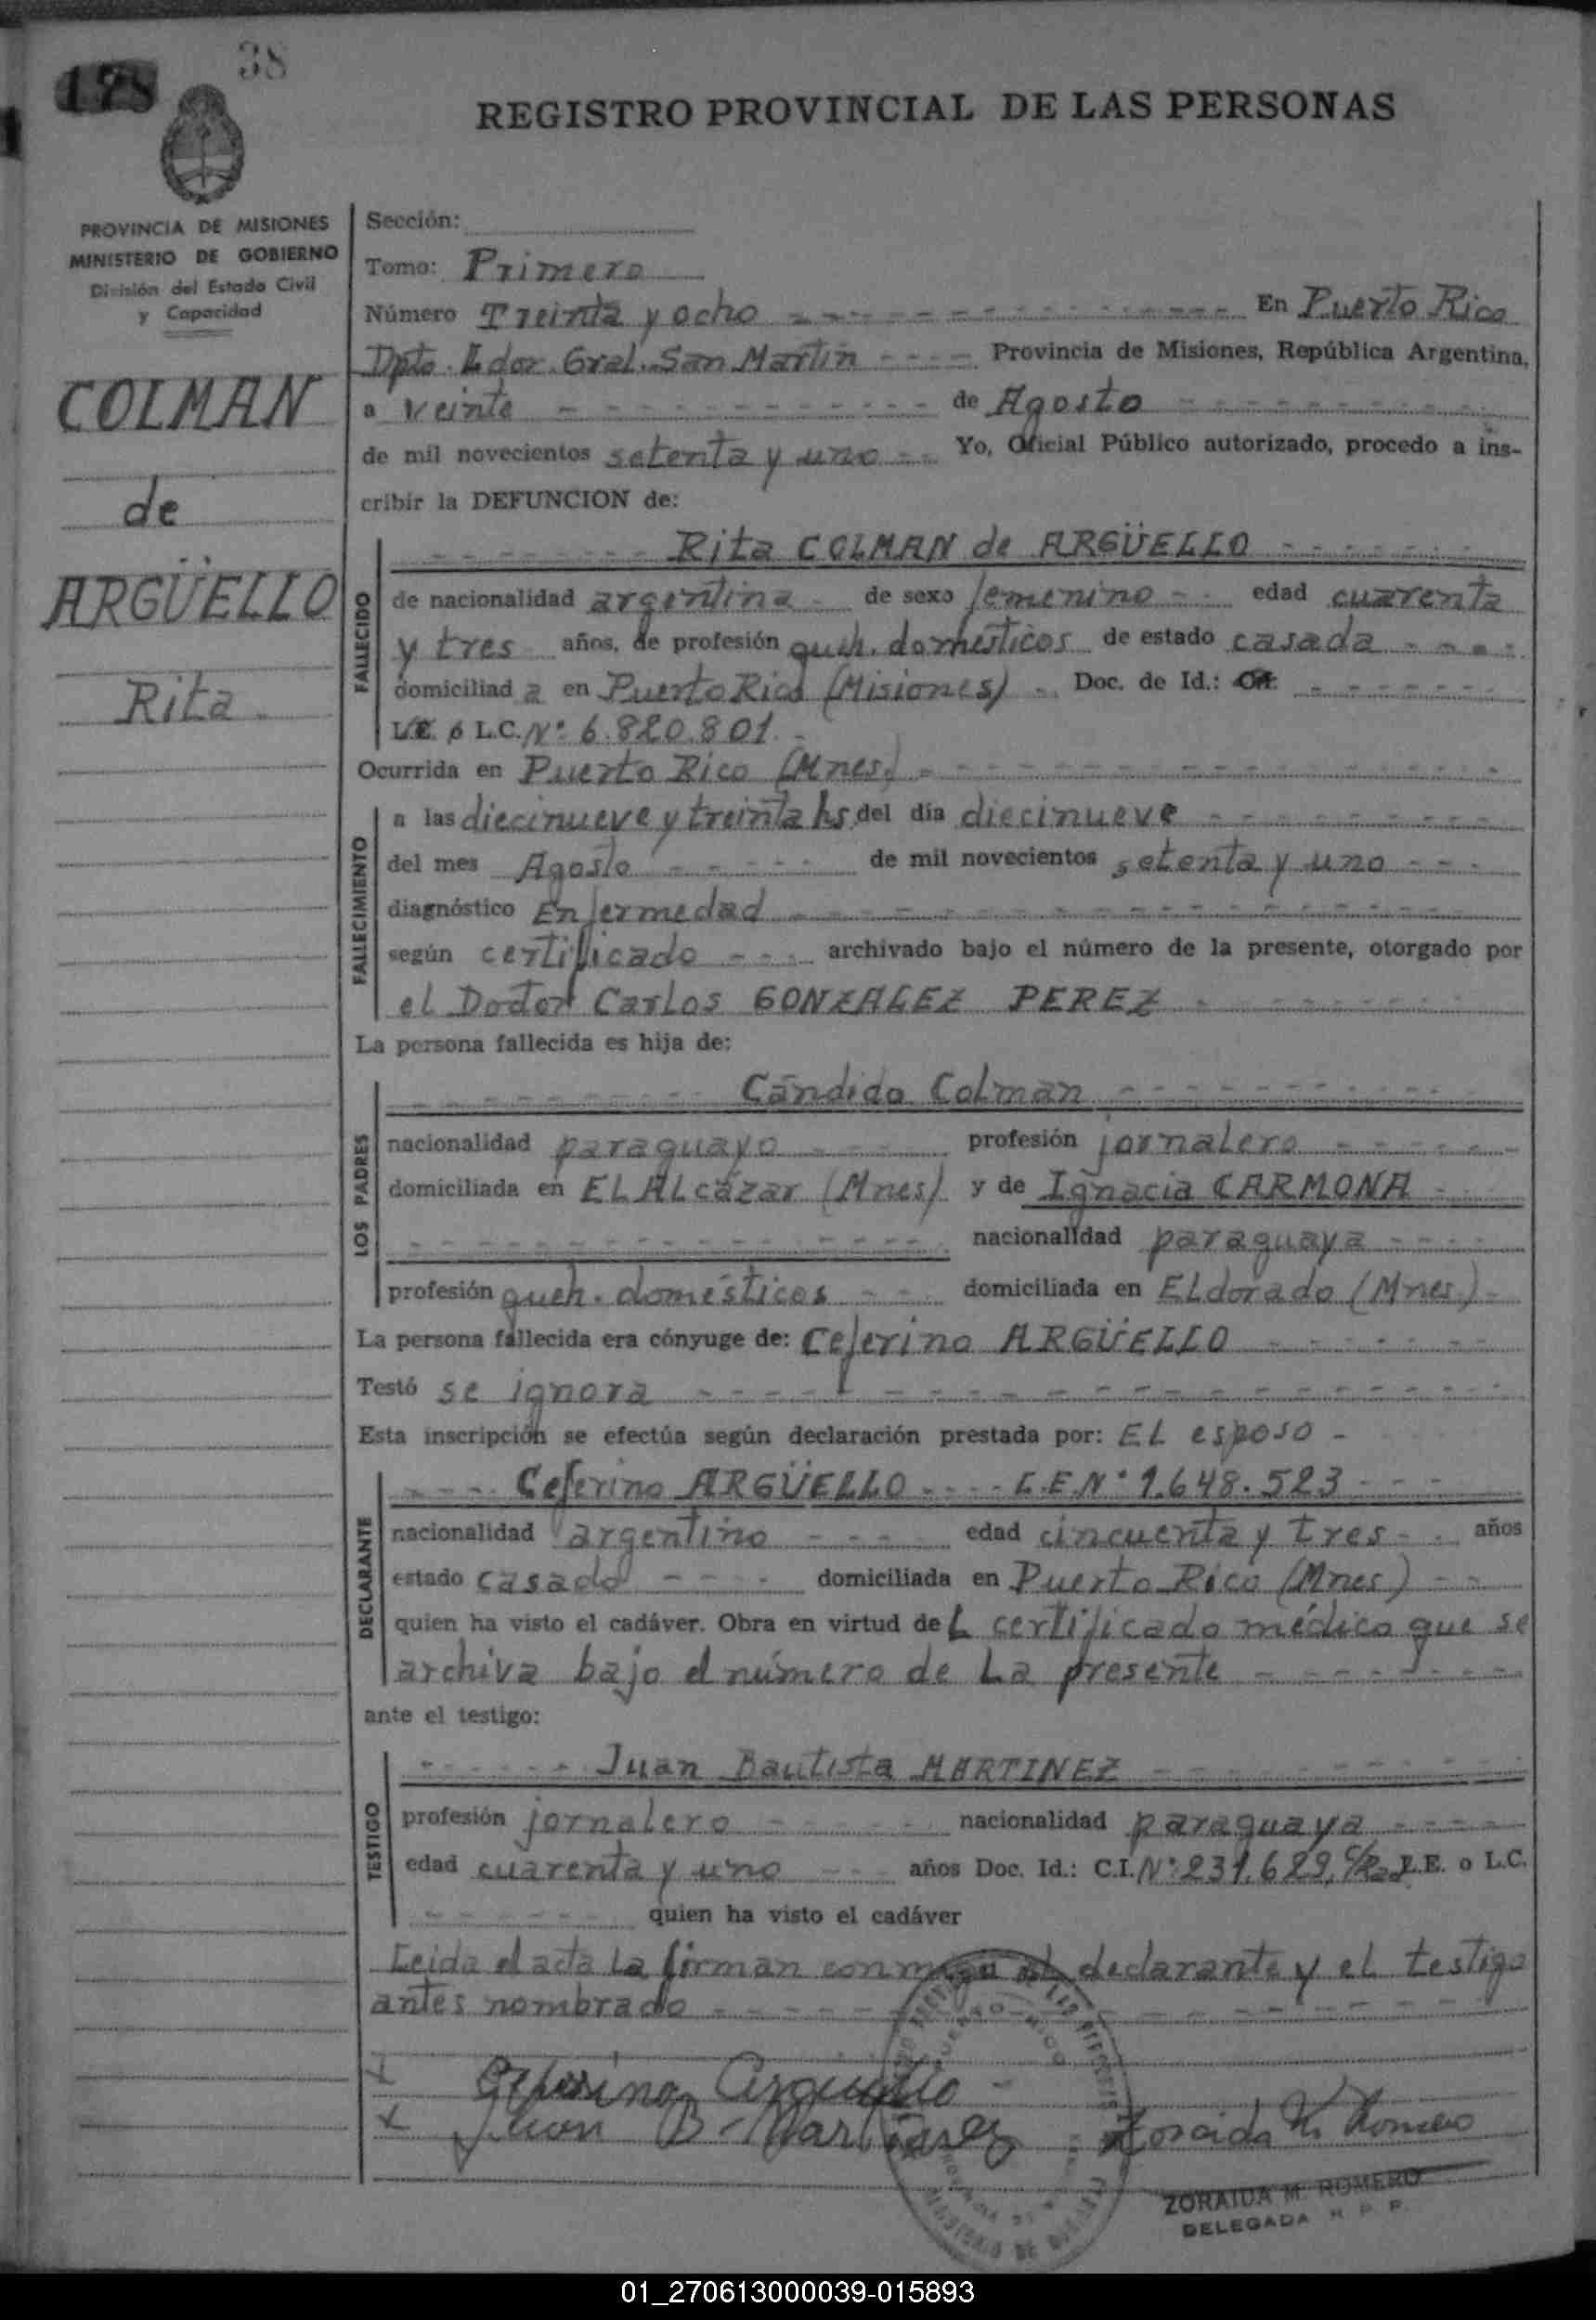 38
178
REGISTRO PROVINCIAL DE LAS PERSONAS
PROVINCIA DE MISIONES
MINISTERIO DE GOBIERNO
División del Estado Civil
y Capacidad
COLMAN
de
ARGÜELLO
Rita
Sección:
Tomo: Primero
Número Treinta y ocho En Puerto Rico
Dpto. Ldor. Gral. San Martín Provincia de Misiones, República Argentina,
a veinte de Agosto
de mil novecientos setenta y uno Yo, Oficial Público autorizado, procedo a ins-
cribir la DEFUNCION de:
Rita COLMAN de ARGÜELLO
FALLECIDO
de nacionalidad argentina de sexo femenino edad cuarenta
y tres años, de profesión queh. domésticos de estado casada
domiciliad a en Puerto Rico (Misiones) Doc. de Id.: C.I.
L.E. ó L.C. Nº 6.820.801.
Ocurrida en Puerto Rico (Mnes)
FALLECIMIENTO
a las diecinueve y treinta hs. del día diecinueve
del mes Agosto de mil novecientos setenta y uno
diagnóstico Enfermedad
según certificado archivado bajo el número de la presente, otorgado por
el Doctor Carlos GONZALEZ PEREZ
La persona fallecida es hija de:
LOS PADRES
Cándido Colman
nacionalidad paraguayo profesión jornalero
domiciliada en EL ALcázar (Mnes) y de Ignacia CARMONA
nacionalidad paraguaya
profesión queh. domésticos domiciliada en ELdorado (Mnes)
La persona fallecida era cónyuge de: Ceferino ARGÜELLO
Testó se ignora
Esta inscripción se efectúa según declaración prestada por: EL esposo
DECLARANTE
Ceferino ARGÜELLO L.E.Nº 1.648.523
nacionalidad argentino edad cincuenta y tres años
estado casado domiciliada en Puerto Rico (Mnes)
quien ha visto el cadáver. Obra en virtud de L certificado médico que se
archiva bajo el número de La presente
ante el testigo:
TESTIGO
Juan Bautista MARTINEZ
profesión jornalero nacionalidad paraguaya
edad cuarenta y uno años Doc. Id.: C.I. Nº 231.629, L.E. o L.C.
quien ha visto el cadáver
Leida el acta La firman conmigo el declarante y el testigo
antes nombrado
Ceferino Arguello
Juan B. Martinez
Zoraida M. Romero
ZORAIDA M. ROMERO
DELEGADA R. P. P.
01_270613000039-015893